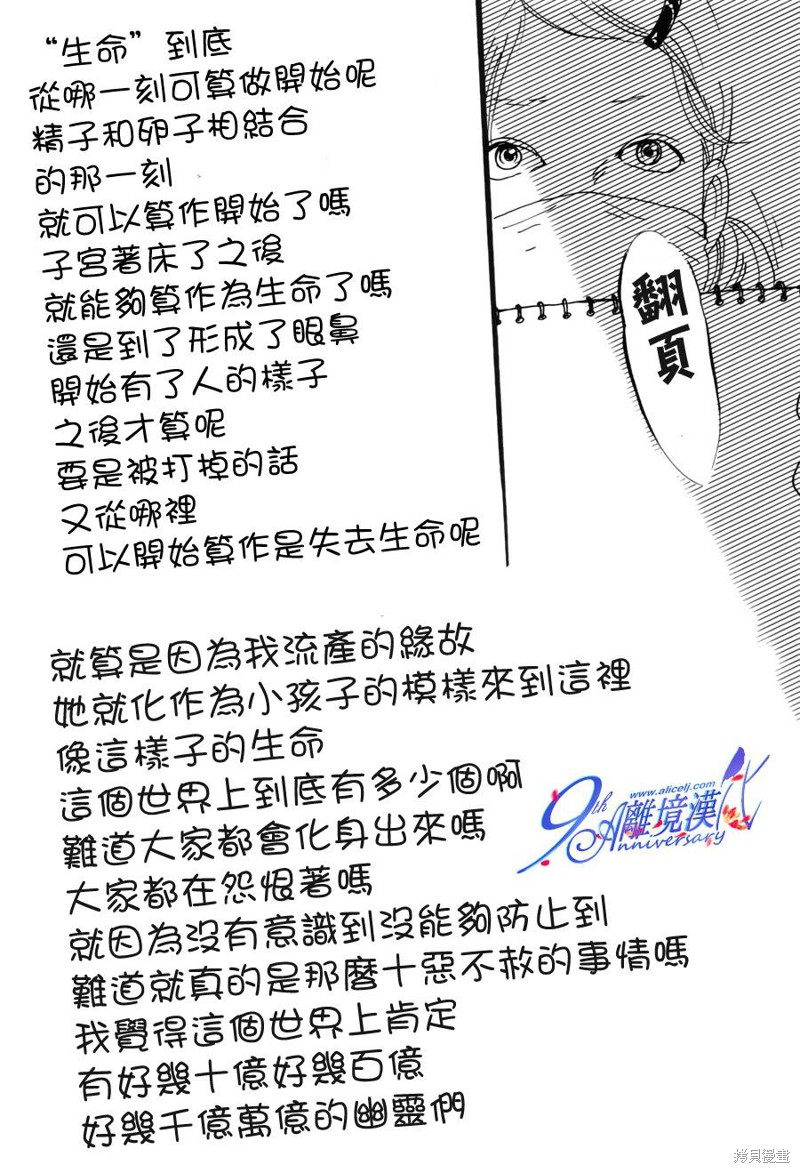 “生命”到底
從哪一刻可算做開始呢
精子和卵子相結合
的那一刻
就可以算作開始了嗎
子宮著床了之後
就能夠算作為生命了嗎
還是到了形成了眼鼻
開始有了人的樣子
之後才算呢
要是被打掉的話
又從哪裡
可以開始算作是失去生命呢
翻頁
就算是因為我流產的緣故
她就化作為小孩子的模樣來到這裡
像這樣子的生命
這個世界上到底有多少個啊
難道大家都會化身出來嗎
大家都在怨恨著嗎
就因為沒有意識到沒能夠防止到
難道就真的是那麼十惡不赦的事情嗎
我覺得這個世界上肯定
有好幾十億好幾百億
好幾千億萬億的幽靈們
9th
www.alicelj.com
離境漢化
Anniversary
拷貝漫畫